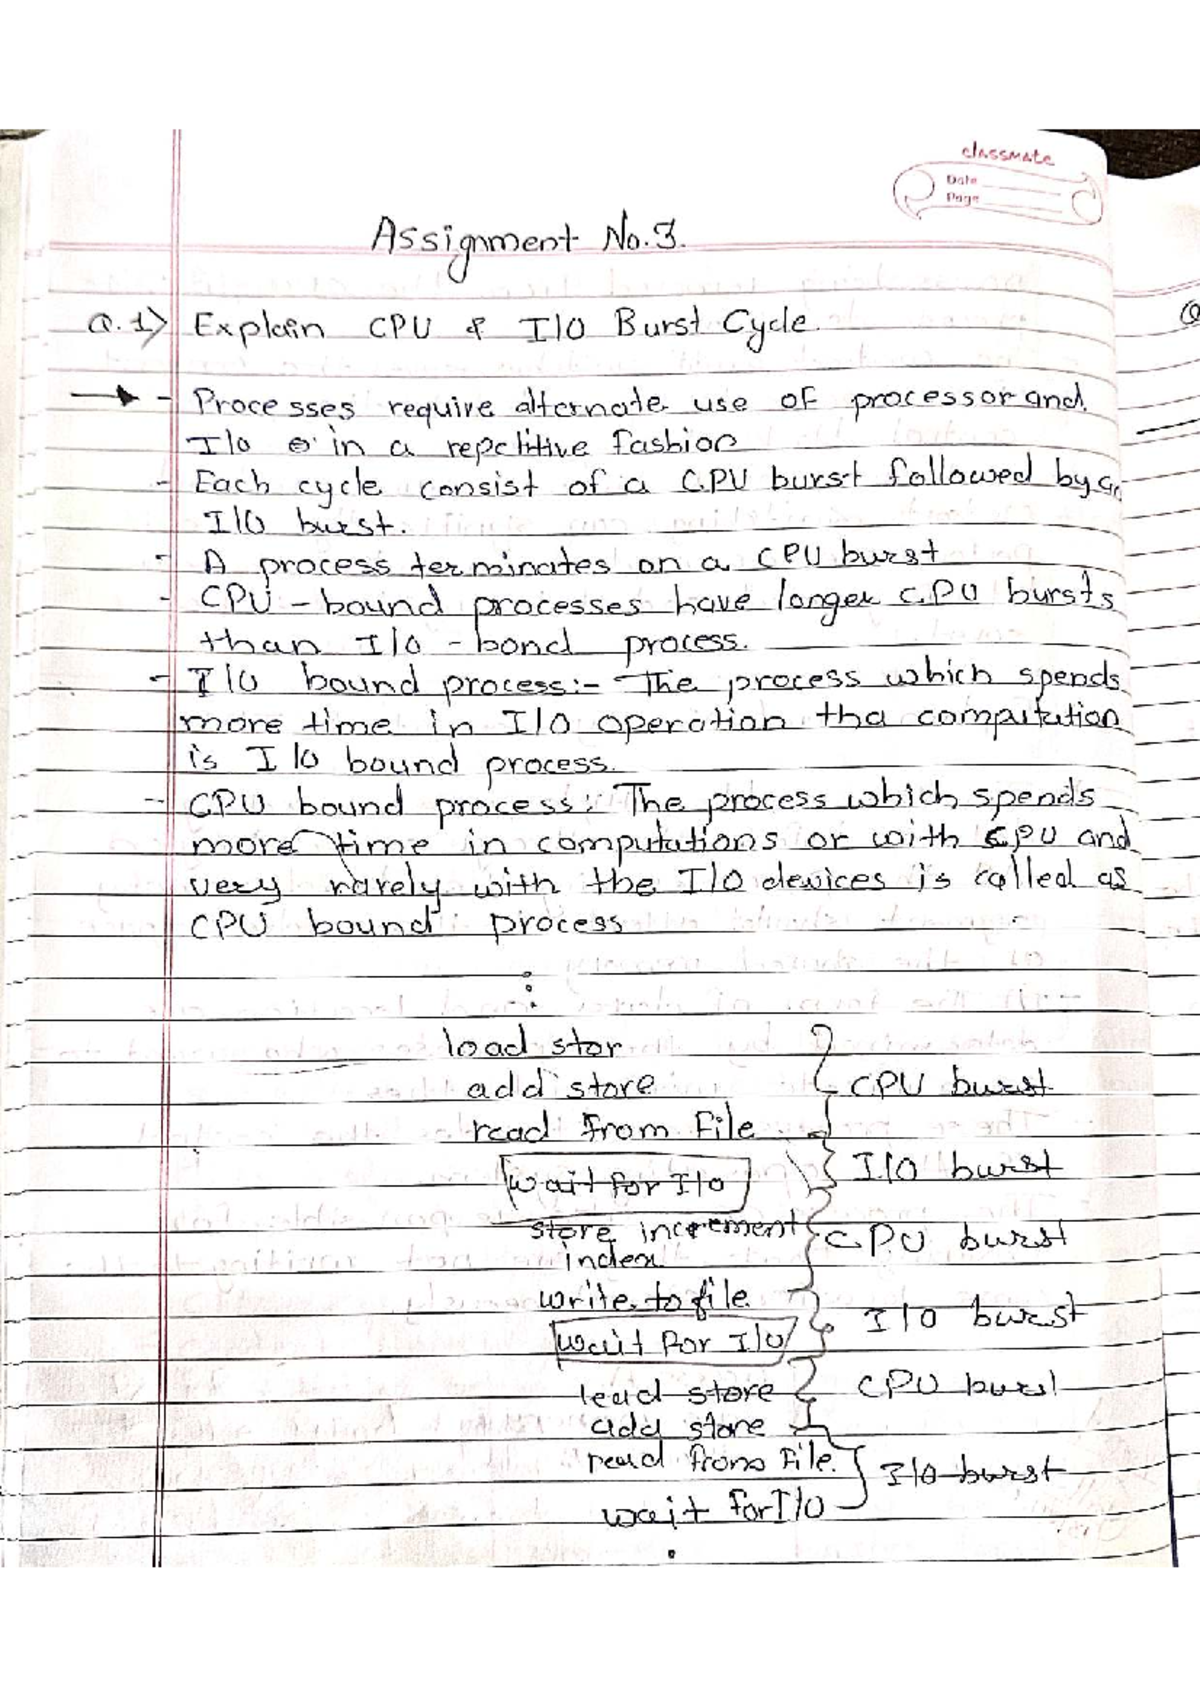 classmate
Date
Page
Assignment No.3.
Q.1> Explain CPU & I/O Burst Cycle.
- Processes require alternate use of processor and
I/O in a repetitive fashion
- Each cycle consist of a CPU burst followed by a
I/O burst.
- A process terminates on a CPU burst
- CPU - bound processes have longer CPU bursts
than I/O - bond process.
- I/O bound process:- The process which spends
more time in I/O operation tha computation
is I/O bound process.
- CPU bound process: The process which spends
more time in computations or with CPU and
very rarely with the I/O devices is called as
CPU bound process
load stor
add store CPU burst
read from file
wait for I/O I/O burst
store increment CPU burst
index
write to file
wait for I/O I/O burst
load store CPU burst
add store
read from file. I/O burst
wait for I/O
Q